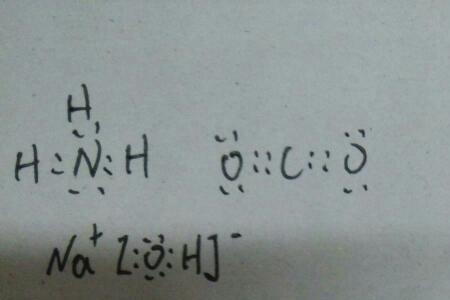 H
H:N̤̈:H Ö̤::C::Ö̤
Na⁺[:Ö̤:H]⁻